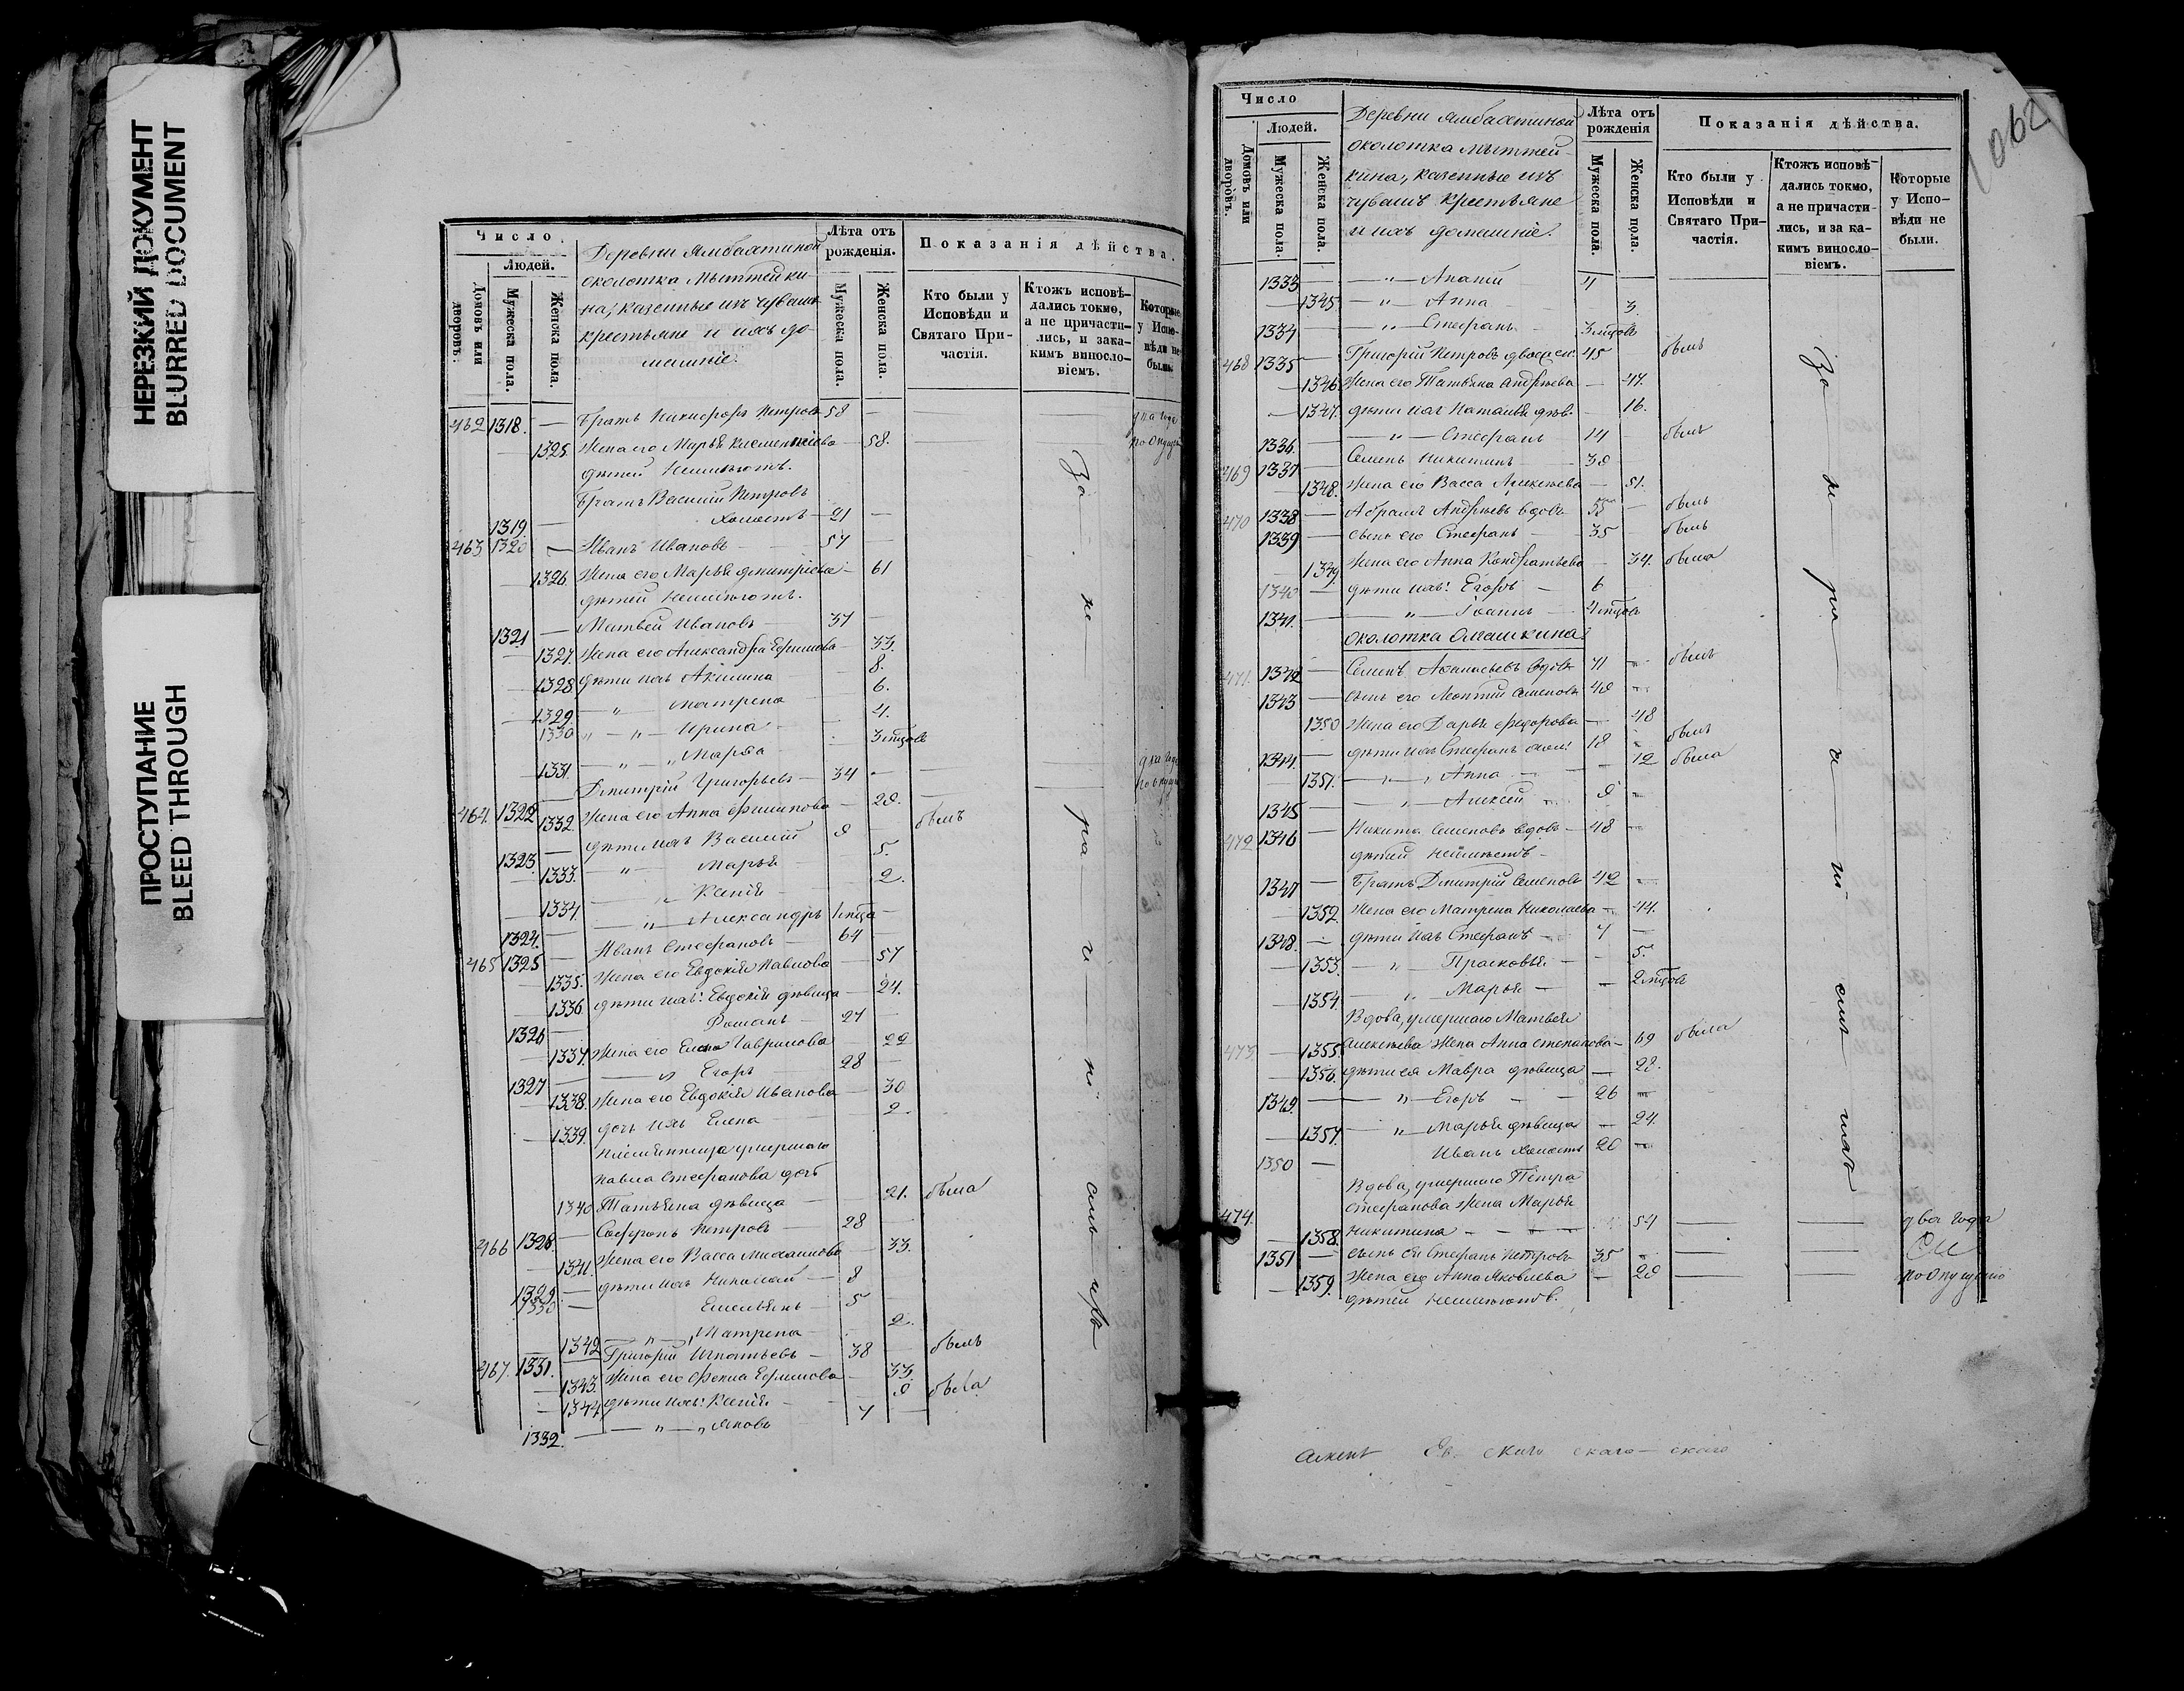 НЕРЕЗКИЙ ДОКУМЕНТ
BLURRED DOCUMENT
ПРОСТУПАНИЕ
BLEED THROUGH
Число.
Людей.
Домовъ или дворовъ.
Мужеска пола.
Женска пола.
Деревни Ямбахтиной
околотка Мыттейки-
на, казенные изъ чувашъ
крестьяне и ихъ до-
машніе.
Лѣта отъ рожденія.
Мужеска пола.
Женска пола.
Показанія дѣйства.
Кто были у Исповѣди и Святаго При-
частія.
Ктожъ исповѣ-
дались токмо,
а не причасти-
лись, и зака-
кимъ винослo-
віемъ.
Которые
у Испо-
вѣди не
были.
462 1318. — Братъ Никифоръ Петровъ 58 — два года
1325. Жена его Марья Клементіева — 58. по опущ
дѣтей неимѣютъ.
Братъ Василий Петровъ
1319. — холостъ — 21 —
463 1320 — Иванъ Ивановъ — 57 —
1326 Жена его Марья Дмитріева — 61
дѣтей неимѣютъ.
1321 — Матвей Ивановъ — 37 —
1327. Жена его Александра Ефимова — 33.
1328. дѣти ихъ Акилина 8.
1329. — " — Матрена 6.
1330 " — " — Ирина — 4.
1331. — " — " Марѳа 3 мцовъ
464. 1322 — Дмитрій Григорьевъ — 34 — два года
1332. Жена его Анна Филипова — 29.
1323. — дѣти ихъ Василій 9 — былъ
1333. — " — Марья — 5.
1334. — " — Ксенія — 2.
1324. — — " — Александръ 1 мца —
465 1325 — Иванъ Стефановъ — 64 —
1335. Жена его Евдокія Павлова — 57
1336. дѣти ихъ: Евдокія дѣвица — 24.
1326 — Романъ — 27 —
1337. Жена его Елена Гаврилова — 22
1327 — — " Егоръ 28 —
1338. Жена его Евдокія Иванова — 30
1339. дочь ихъ Елена — 2.
Племянница умершаго
Павла Стефанова дочь
1340 Татьяна дѣвица — 21. была
466 1328. — Софронъ Петровъ — 28 —
1341. Жена его Васса Михаилова — 33.
1329. — дѣти ихъ Николай — 8
1330 — Емельянъ — 5
1342 — " — " Матрена — 2.
467. 1331. — Григорій Игнатьевъ — 38 — былъ
1343. Жена его Фекла Ефимова — 33.
1344 дѣти ихъ: Ксенія — 9 была
1332. — — " — " Яковъ 7 —
За не ра ч ні емъ ихъ
Число
Людей.
Домовъ или дворовъ.
Мужеска пола.
Женска пола.
Деревни Ямбахтиной
околотка Мыттей-
кина, казенные изъ
чувашъ крестьяне
и ихъ домашніе.
Лѣта отъ
рожденія
Мужеска пола.
Женска пола.
Показанія дѣйства.
Кто были у
Исповѣди и
Святаго При-
частія.
Ктожъ исповѣ-
дались токмо,
а не причасти-
лись, и за ка-
кимъ винослo-
віемъ.
Которые
у Испо-
вѣди не
были.
1062
1333 — — " —
1345. — " — Анна — 3.
1334 — " — Стефанъ — 3 мцовъ
468 1335 — Григорій Петровъ 45 — былъ
1346 Жена его Татьяна Андреева — 47.
1347. дѣти ихъ Наталья дѣв. — 16.
1336. — — " — Стефанъ 14 — былъ
469 1337 — Семенъ Никитинъ — 39
1348. Жена его Васса Алексѣева — 51.
470 1338 — Абрамъ Андреевъ вдовъ 55 — былъ
1339 — сынъ его Стефанъ — 35 — былъ
1349 Жена его Анна Кондратьева — 34. была
1340 — дѣти ихъ: Егоръ — 6
1341. — " — Іоаннъ — 4 мцовъ
околотка Олмашкина
471. 1342 — Семенъ Аѳанасьевъ вдовъ 71 — былъ
1343 — сынъ его Леонтій Семеновъ 49 —
1350 Жена его Дарья Федорова — 48
1344. — дѣти ихъ Стефанъ холос: 18 — былъ
1351. — " — " Анна — — 12 была
1345 — — " — Алексѣй — 9 —
472 1346 — Никита Семеновъ вдовъ — 48 —
дѣтей неимѣетъ —
1347 — Братъ Дмитрій Семеновъ 42 —
1352. Жена его Матрена Николаева — 44.
1348. — дѣти ихъ Стефанъ — 7 —
1353. — " — Прасковья — — 5.
1354. — " — Марья — — 2 мцовъ
Вдова, умершаго Матвея
473. — 1355. Алексѣева жена Анна Степанова — 69 была
1356. дѣти ея Мавра дѣвица — 28.
1349. — — " — Егоръ — — 26 —
1357. — " — Марья дѣвица — 24.
1350 — Иванъ холостъ 20 —
Вдова, умершаго Петра
Стефанова жена Марья
474. 1358. Никитина — — — 54 — — два года
1351 — сынъ ея Стефанъ Петровъ 35 — — —
1359. Жена его Анна Яковлева — 29 — — по опущенію
дѣтей неимѣютъ.
За не ра ч ні емъ ихъ